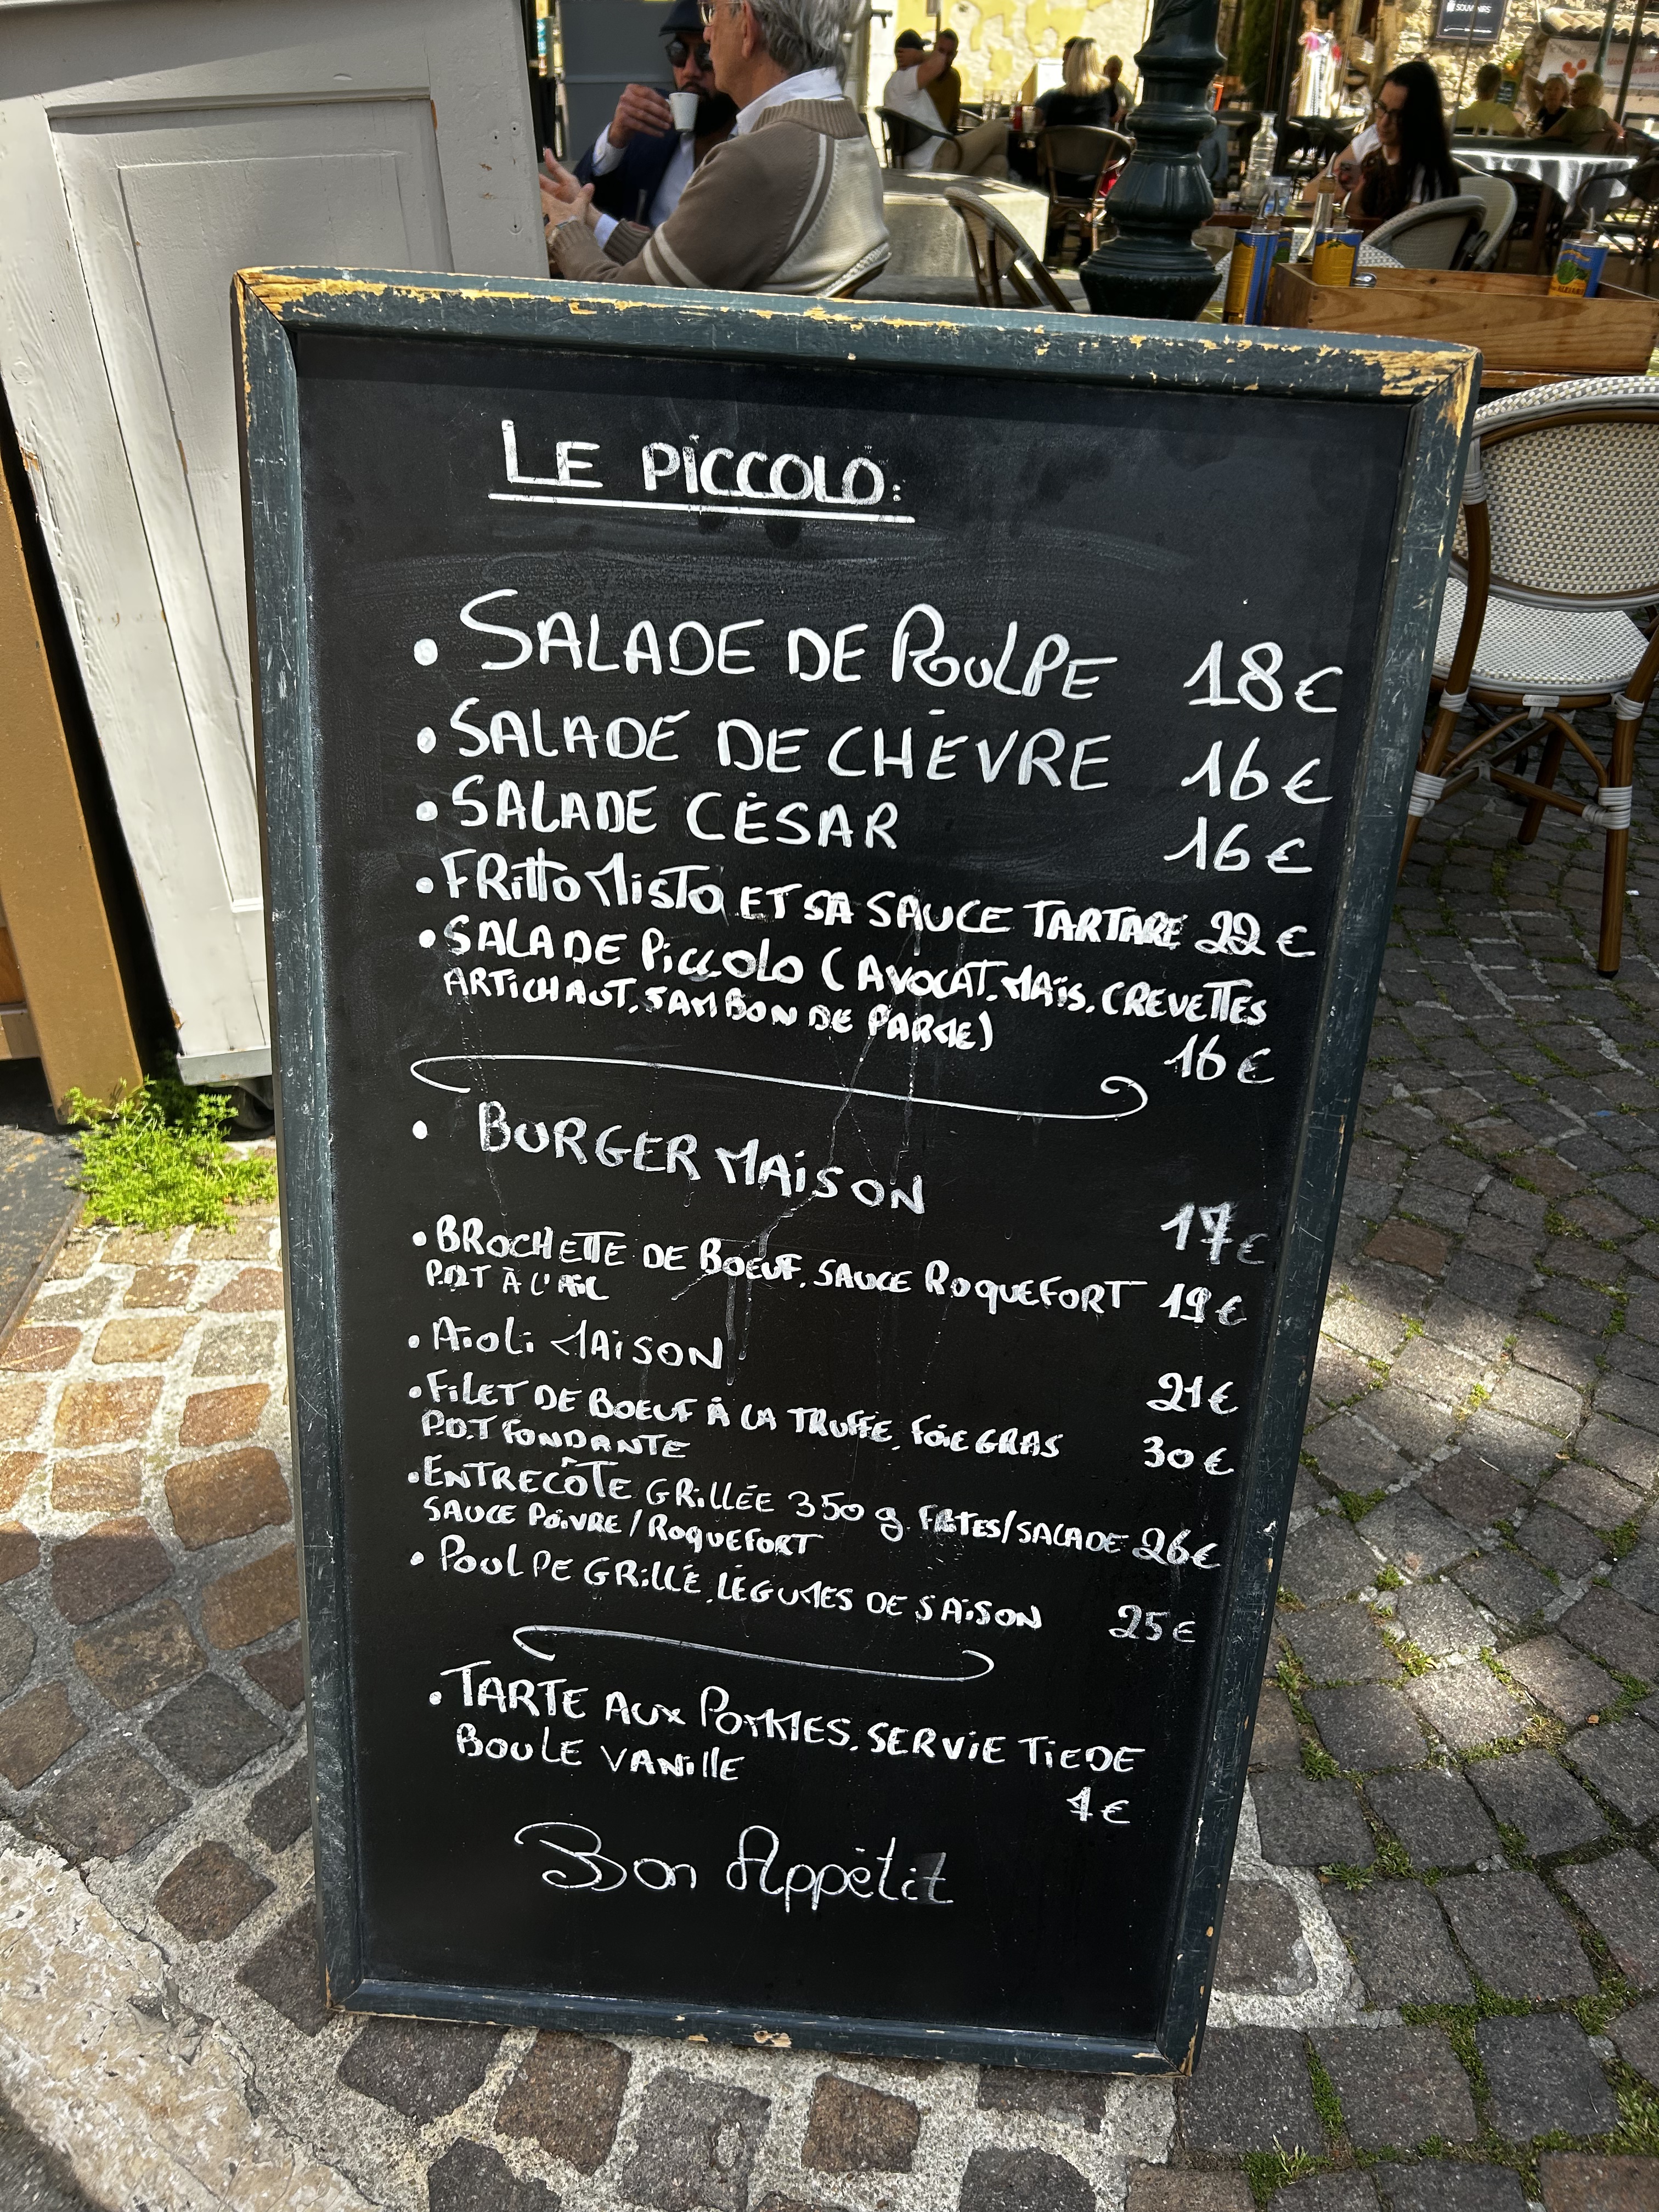 SOUVENIRS
LE PICCOLO:
• SALADE DE POULPE 18€
• SALADE DE CHÈVRE 16€
• SALADE CÉSAR 16€
• FRITTO MISTO ET SA SAUCE TARTARE 22€
• SALADE PICCOLO (AVOCAT, MAÏS, CREVETTES
ARTICHAUT, JAMBON DE PARME)
16€
• BURGER MAISON
17€
• BROCHETTE DE BOEUF, SAUCE ROQUEFORT 19€
P.D.T À L'AIL
• AÏOLI MAISON
21€
• FILET DE BOEUF À LA TRUFFE, FOIE GRAS 30€
P.D.T FONDANTE
• ENTRECÔTE GRILLÉE 350 g. FRITES/SALADE 26€
SAUCE POIVRE/ROQUEFORT
• POULPE GRILLÉ, LÉGUMES DE SAISON 25€
• TARTE AUX POMMES, SERVIE TIEDE
BOULE VANILLE
€
Bon Appétit